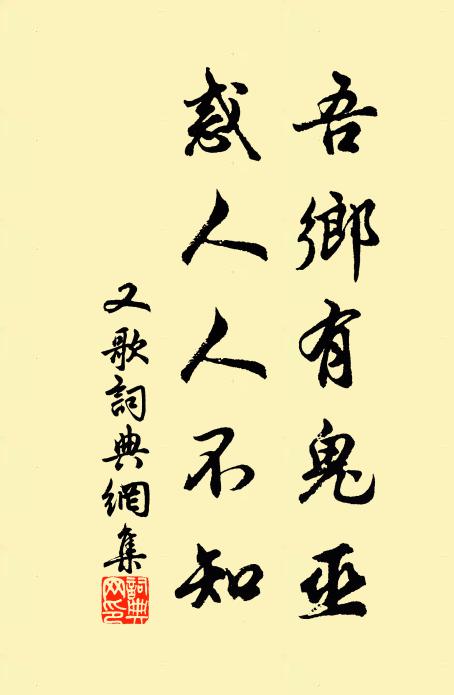 吾鄉有鬼巫
惑人人不知
又歌詞典網集
詞典網印